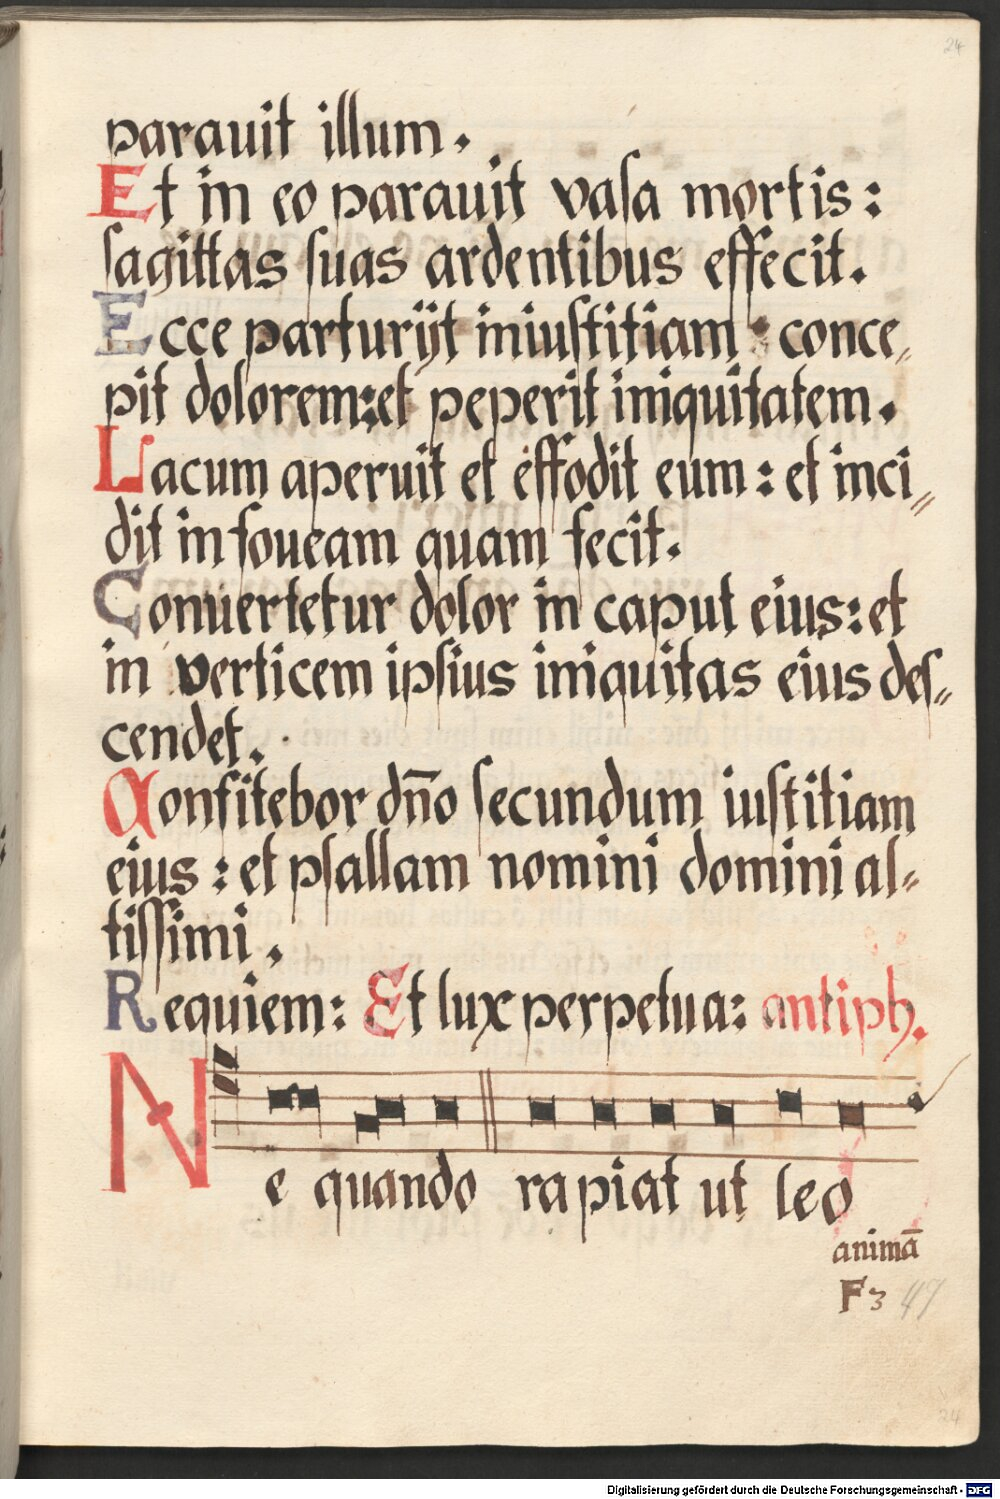 24
parauit illum.
Et in eo parauit vasa mortis:
sagittas suas ardentibus effecit.
Ecce parturijt iniustitiam: conce„
pit dolorem: et peperit iniquitatem.
Lacum aperuit et effodit eum: et inci„
dit in foueam quam fecit.
Conuertetur dolor in caput eius: et
in verticem ipsius iniquitas eius des„
cendet.
Confitebor dn̄o secundum iustitiam
eius: et psallam nomini domini al„
tissimi.
Requiem: Et lux perpetua: antiph.
Ne quando rapiat ut leo
animā
F3 47
24
Digitalisierung gefördert durch die Deutsche Forschungsgemeinschaft - DFG